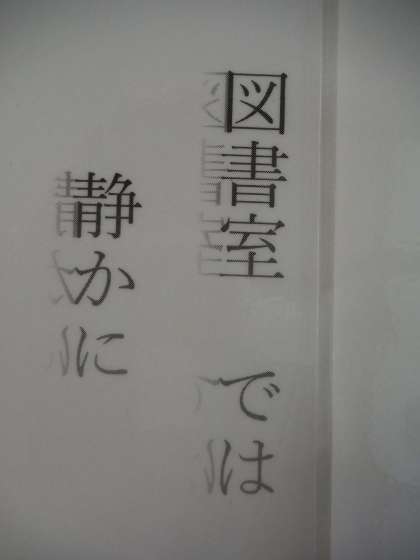 図書室 では
静かに